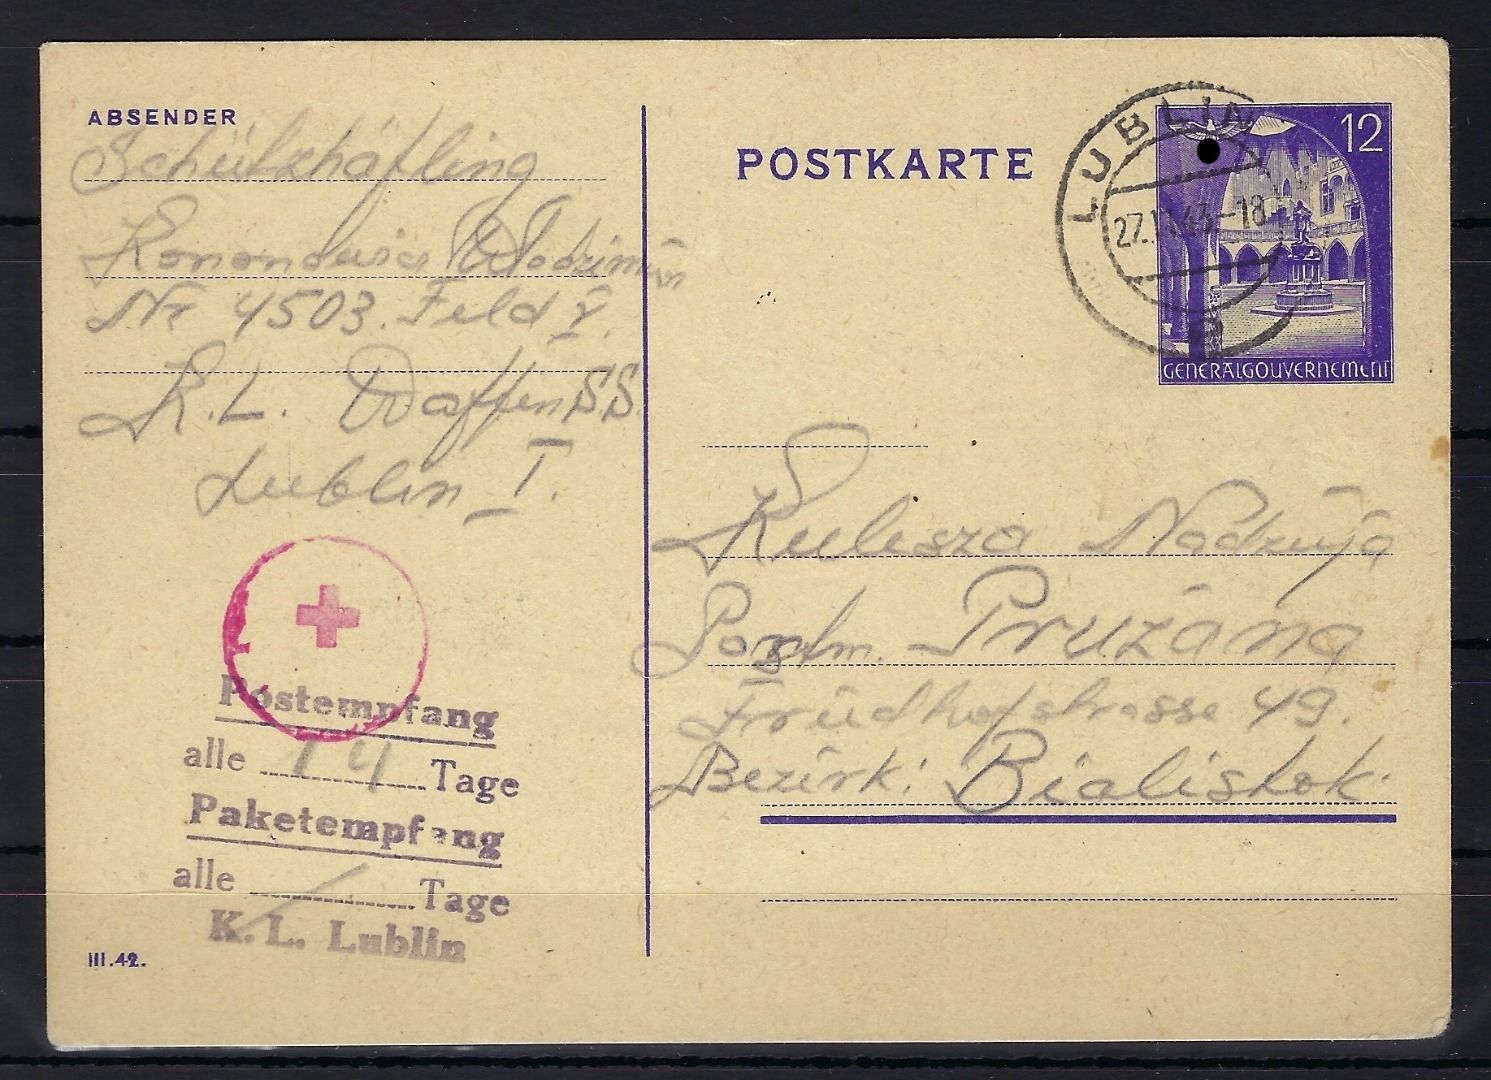 ABSENDER
Schützhäftling
Wlodzimir
Nr 4503. Feld V.
K.L. Waffen SS.
Lublin I.
Postempfang
alle 14 Tage
Paketempfang
alle / Tage
K. L. Lublin
III.42.
POSTKARTE
LUBLIN
43-18
12
GENERALGOUVERNEMENT
Kulesza Nadzieja
Pruzana
Friedhofstrasse 49.
Bezirk: Bialistok.